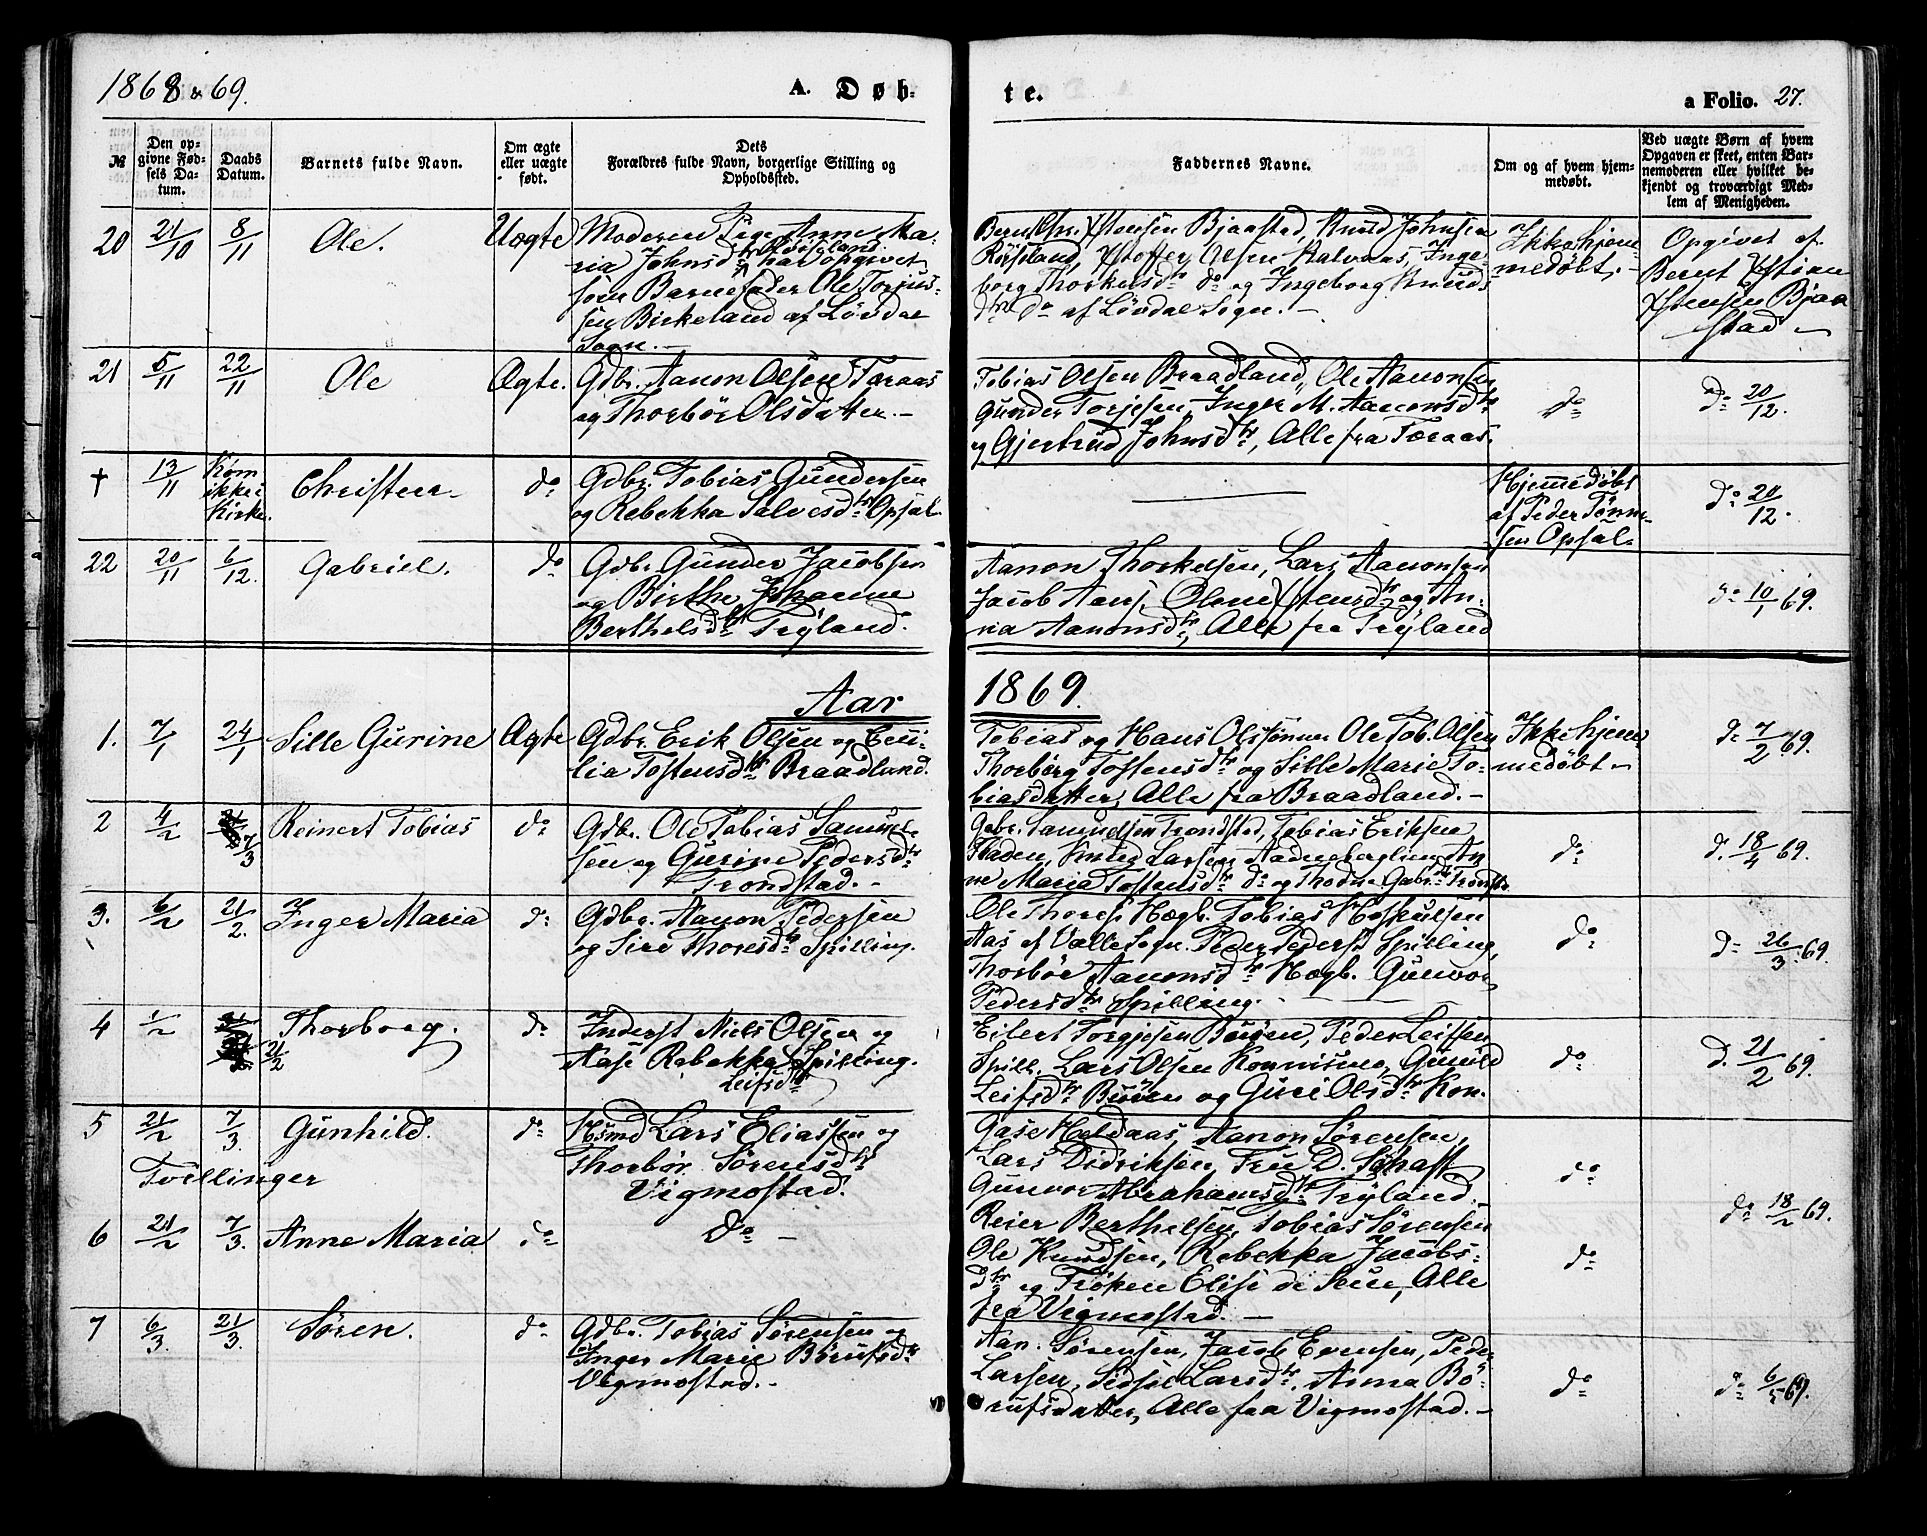 1868 & 69.
A. Døb-
te.
a Folio. 27.
№
Den op-
givne Fød-
sels Da-
tum.
Daabs
Datum.
Barnets fulde Navn.
Om ægte
eller uægte
født.
Dets
Forældres fulde Navn, borgerlige Stilling og
Opholdssted.
Faddernes Navne.
Om og af hvem hjem-
medøbt.
Ved uægte Børn af hvem
Opgaven er skeet, enten Bar-
nemoderen eller hvilket be-
kjendt og troværdigt Med-
lem af Menigheden.
20
21/10
8/11
Ole.
Uægte
Moderen Pige Anne Ma-
ria Johnsdtr Røiseland har opgivet
som Barnefader Ole Torjus-
sen Birkeland af Løvdal
Sogn. -
Bernt Chr. Xstensen Bjaastad, Knud Johnsen
Röiseland, Xstoffer Olsen Halvaas, Inge-
borg Thorkelsdtr do og Ingeborg Knuds
dtr do af Lövdal Sogn. -
Ikke hjem
medøbt. -
Opgivet af
Bernt Xstian
Xstensen Bjaa
stad -
21
5/11
22/11
Ole
Ægte.
Gdbr. Aanon Olsen Taraas
og Thorbör Olsdatter. -
Tobias Olsen Braadland, Ole Aanonsen
Gunder Torjesen, Inger M. Aanonsdtr
og Gjertrud Johnsdtr, Alle fra Taraas.
do
do 20/12.
†
13/11
Kom
ikke i
Kirke.
Christen
do
Gdbr. Tobias Gundersen
og Rebekka Salvesdtr Opsal
Hjemmedøbt
af Peder Tønne-
sen Opsal-
do 20/12.
22
20/11
6/12.
Gabriel.
do
Gdbr. Gunder Jacobsen
og Birthe Johanne
Berthelsdtr Trÿland.
Aanon Thorkelsen, Lars Aanonsen
Jacob Aans, Olene Xstensdtr og An-
na Aanonsdtr, Alle fra Trÿland
do 10/1 69.
Aar
1869.
1.
7/1
24/1
Sille Gurine
Ægte
Gdbr. Erik Olsen og Emi-
lia Tostensdtr Braadland.
Tobias og Hans Olssönner Ole Tob. Olsen
Thorborg Tostensdtr og Sille Marie To-
biasdatter, Alle fra Braadland. -
Ikke hjem
medøbt -
do 7/2 69.
2
4/2
7/3
Reinert Tobias
do
Gdbr. Ole Tobias Samuel-
sen og Gurine Pedersdtr
Trondstad. -
Gabr. Samuelsen Trondstad, Tobias Eriksen
Larsen An
ne Maria Tostensdtr do og Thodne Gabr.dtr Trondst.
do
d. 18/4 69.
3.
6/2
21/2.
Inger Maria
do
Gdbr. Aanon Pedersen
og Siri Thoresdtr Spilling.
Ole Thores Hægb. Tobias Hoskulsen
Aas af Valle Sogn. Peder Peders Spilling,
Thorbör Aanonsdtr Hægb. Gunvor
Pedersdtr Spilling.
do
do 26/3 69.
4
1/2
21/2
Thorborg.
do
Inderst Niels Olsen og
Aase Rebekka Spilling.
Leifsdtr
Eilert Torgjesen Buöen, Peder Leifsen
Spill. Lars Olsen Konnismo, Gunild
Leifsdtr Buöen og Guri Olsdtr Kon.
do
d. 21/2 69.
5
21/2
7/3.
Gunhild.
do
Hsmd Lars Eliassen og
Thorbör Sörensdtr
Vigmostad.
Gase Heldaas, Aanon Sörensen,
Lars Didriksen, Fru D. Schaft
Gunvor Abrahamsdtr Trÿland.
do
Tvillinger
6
21/2
7/3.
Anne Maria
do
Do -
Reier Berthelsen, Tobias Sörensen
Ole Knudsen, Rebekka Jacobs-
dtr og Fröken Elise de Seue, Alle
fra Vigmostad. -
do
do 18/2 69.
7
6/3.
21/3.
Sören.
do
Gdbr. Tobias Sörensen og
Inger Marie Börufsdtr
Vigmostad. -
Aan. Sörensen, Jacob Evensen, Peder
Larsen, Sidsel Larsdtr. Anna Bö-
rufsdatter, Alle fra Vigmostad. -
do
do 6/5 69.